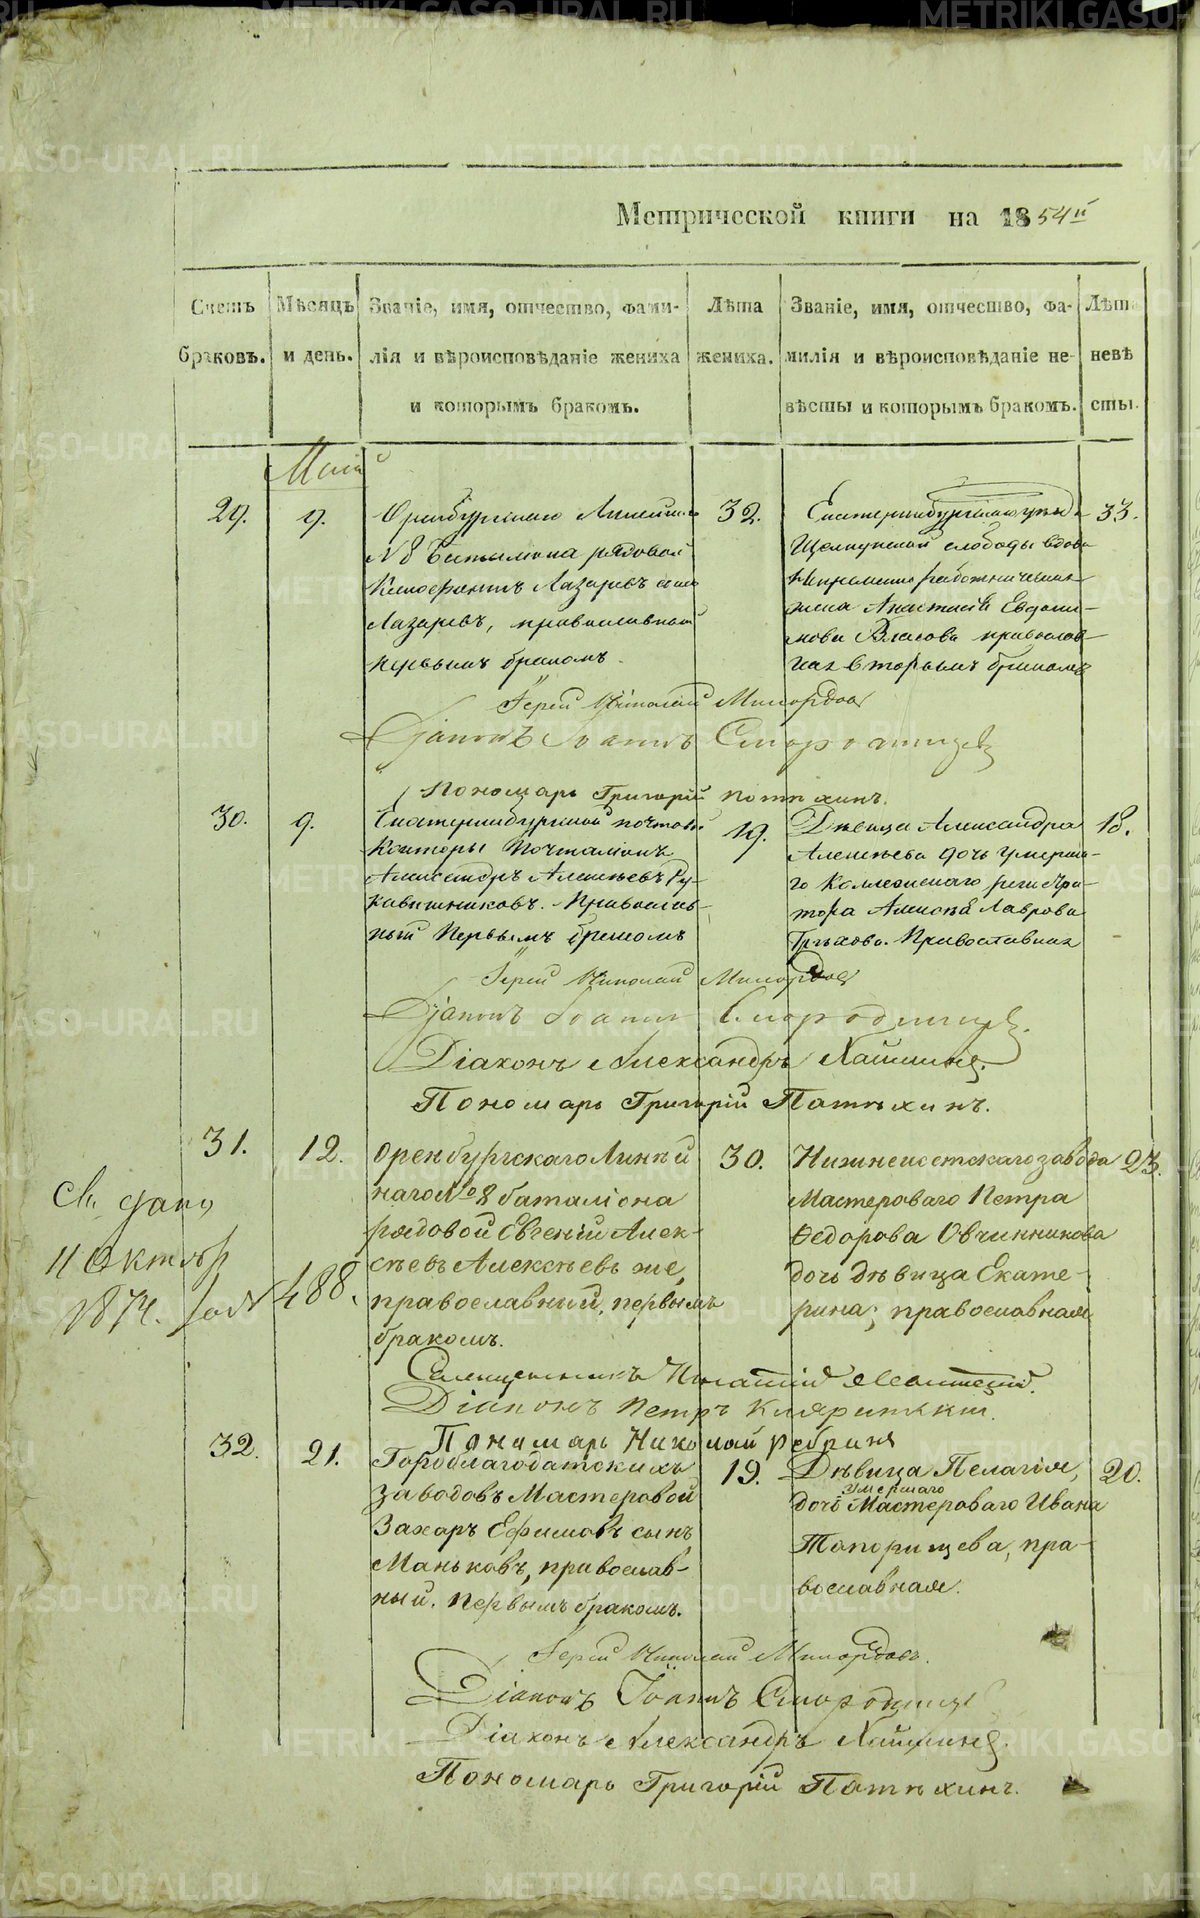 Метрической книги на 1854й
Счетъ браковъ.
Мѣсяцъ и день.
Званіе, имя, отчество, фами-
лія и вѣроисповѣданіе жениха
и которымъ бракомъ.
Лѣта жениха.
Званіе, имя, отчество, фа-
милія и вѣроисповѣданіе не-
вѣсты и которымъ бракомъ.
Лѣта невѣ
сты.
Май
29.
9.
Оренбургскаго Линейна
№ 8 Баталіона рядовой
Ксенофонтъ Лазаревъ сынъ
Лазаревъ, православный
первымъ бракомъ.
32.
Екатеринбургскаго уѣзда
слободы вдова
жена Анастасія Евдоки-
мова Власова православ-
ная вторымъ бракомъ
33.
Іерей Николай
Діаконъ Іоаннъ Смородинцевъ
Пономарь Григорій Потѣхинъ.
30.
9.
Екатеринбургской почтовой
Конторы Почталіонъ
Александръ Алексѣевъ Ру-
кавишниковъ. Православ-
ный Первымъ бракомъ
19.
Дѣвица Александра
Алексѣева дочь умерша-
го Коллежскаго регистра-
тора Алексѣя Лаврова
Грѣхова. Православная
18.
Іерей Николай
Діаконъ Іоаннъ Смородинцевъ.
Діаконъ Александръ
Пономарь Григорій Потѣхинъ.
31.
12.
Оренбургскаго Линѣй
наго № 8 баталіона
рядовой Евгеній Алек-
сѣевъ Алексѣевъ же,
православный, первымъ
бракомъ.
30.
Нижнеисетскаго завода
Мастероваго Петра
Ѳедорова Овчинникова
дочь дѣвица Екате-
рина; православная
23.
Св. дано
11 Октябр
1874. год № 488.
Священникъ Игнатій
Діаконъ Петръ
Пономарь Николай Ребринъ
32.
21.
Гороблагодатскихъ
заводовъ Мастеровой
Захаръ Ефимовъ сынъ
Маньковъ, православ-
ный. первымъ бракомъ.
19.
Дѣвица Пелагія,
умершаго
дочь Мастероваго Ивана
Топорищева, пра-
вославная.
20.
Іерей Николай
Діаконъ Іоаннъ Смородинцевъ
Діаконъ Александръ
Пономарь Григорій Потѣхинъ.
METRIKI.GASO-URAL.RU